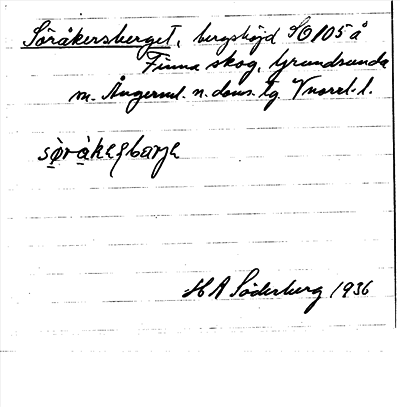 Söråkersberget, bergshöjd SO 105 å
Finna skog, Grundsunda
sn. Ångerml. n. doms. tg. Vnorrl. l.
söråkeʂbarje
H A Söderburg 1936